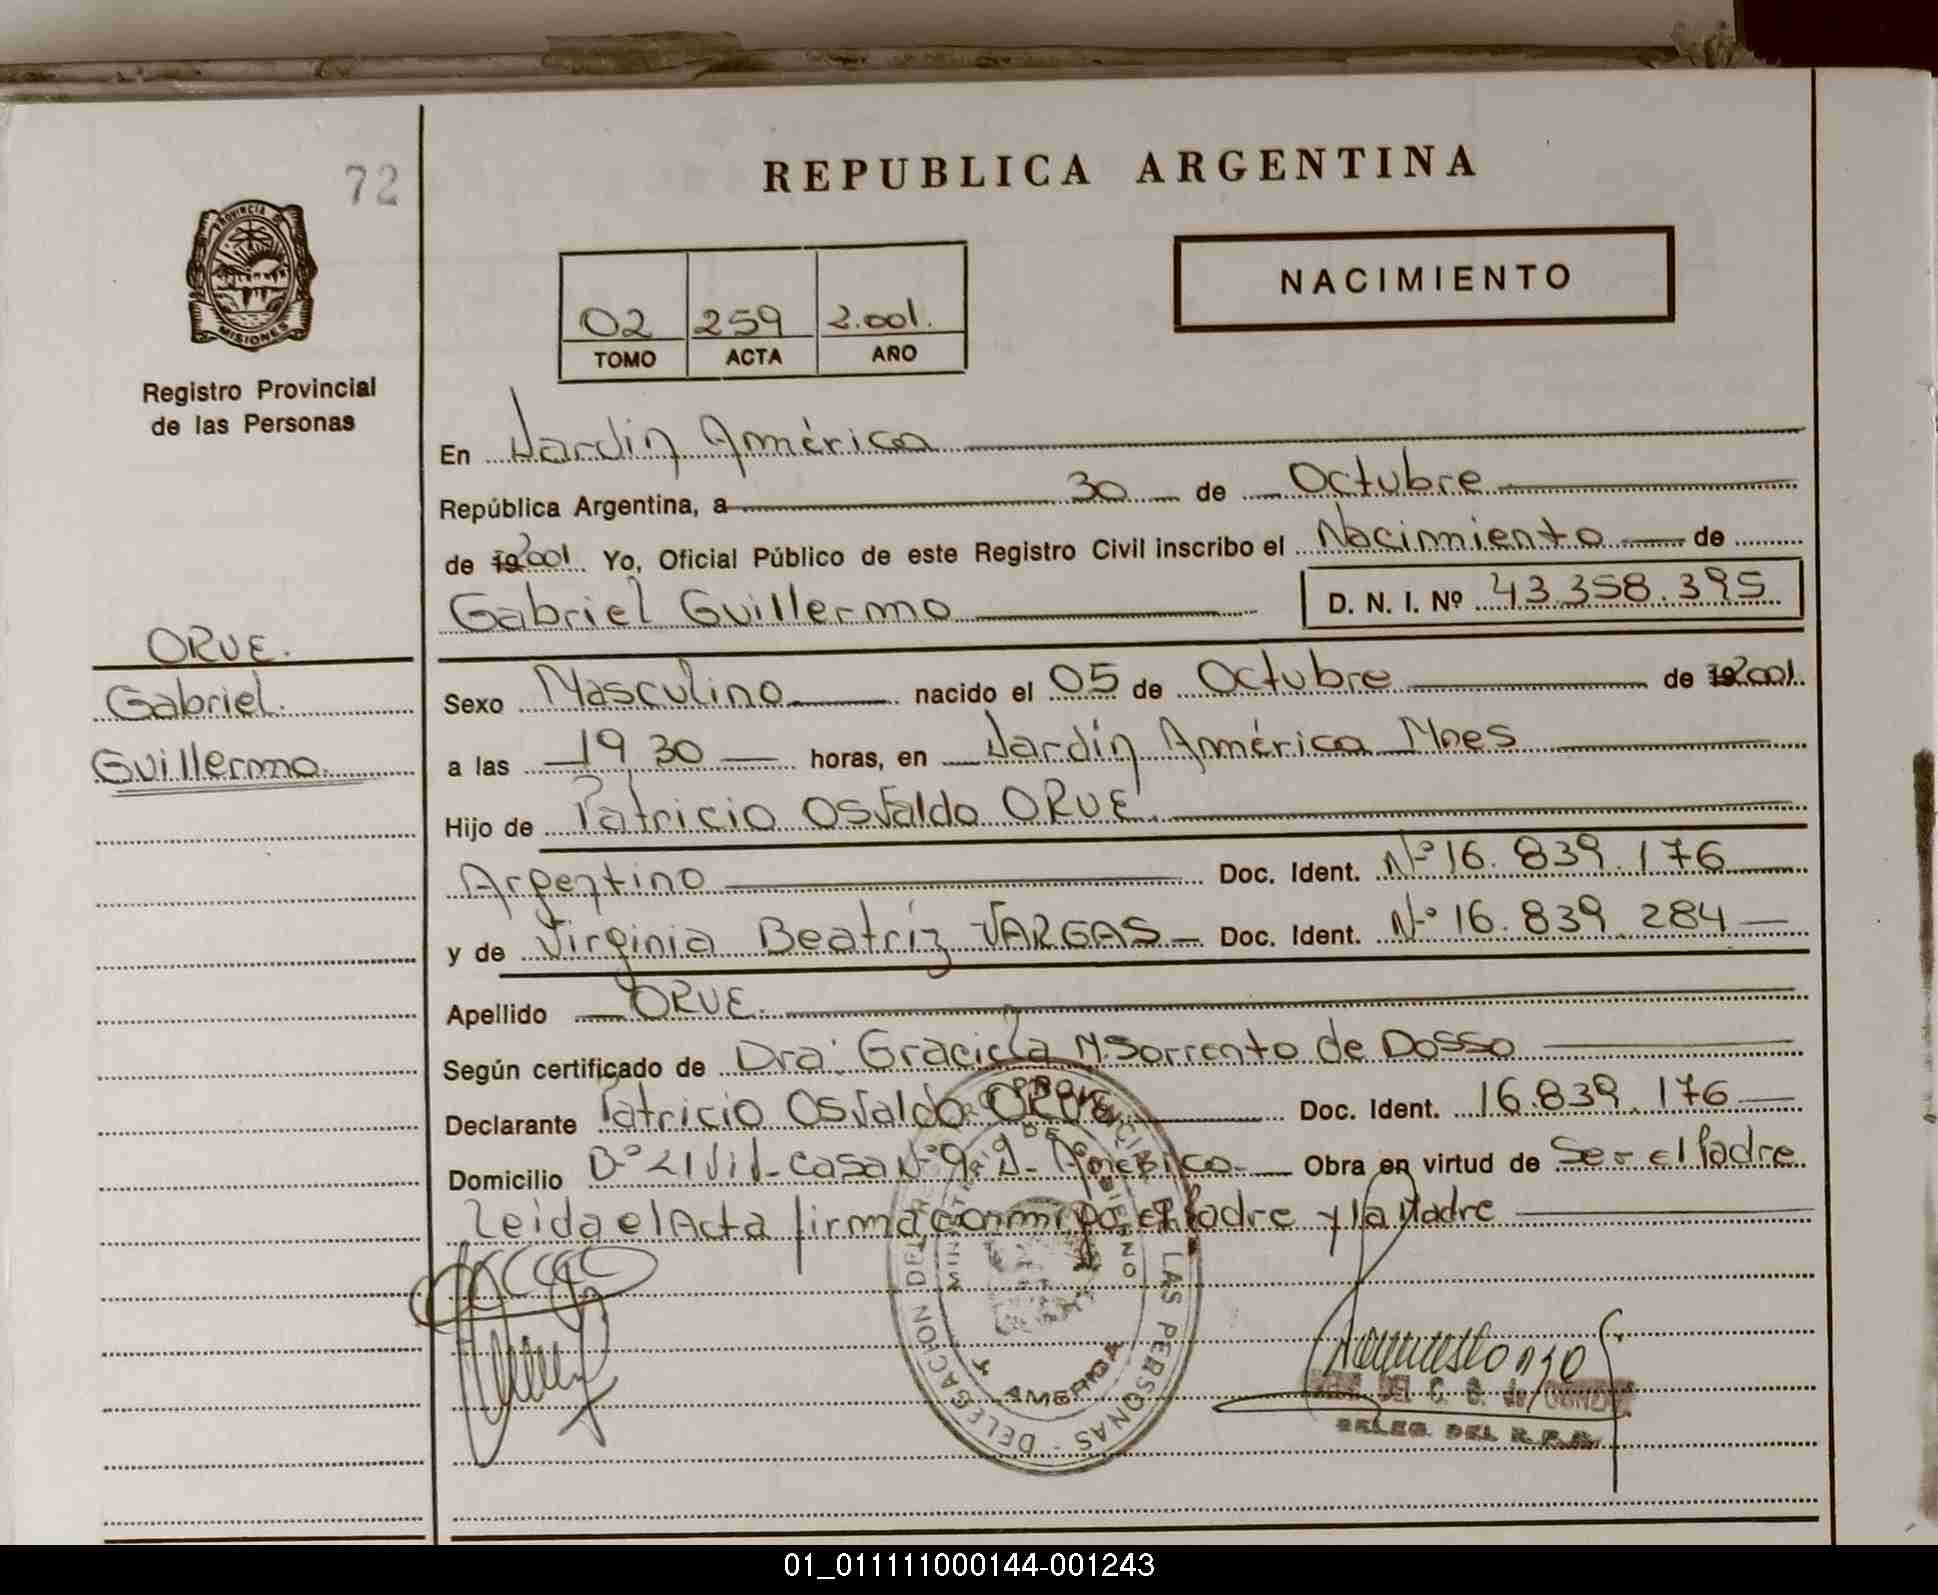 72
REPUBLICA ARGENTINA
PROVINCIA DE
MISIONES
Registro Provincial
de las Personas
02 259 2.001.
TOMO ACTA AÑO
NACIMIENTO
En Jardín América
República Argentina, a 30 de Octubre
de 192001 Yo, Oficial Público de este Registro Civil inscribo el Nacimiento de
Gabriel Guillermo D. N. I. Nº 43.358.395
ORUE.
Gabriel.
Guillermo.
Sexo Masculino nacido el 05 de Octubre de 192001.
a las 19 30 horas, en Jardín América Mnes
Hijo de Patricio Osvaldo ORUE.
Argentino Doc. Ident. Nº 16.839.176
y de Virginia Beatríz VARGAS Doc. Ident. Nº 16.839.284
Apellido ORUE.
Según certificado de Dra. Graciela M. Sorrento de Dosso
Declarante Patricio Osvaldo ORUE Doc. Ident. 16.839.176
Domicilio Bº 21 Viv- casa Nº 9. J. América Obra en virtud de Ser el Padre
Leida el Acta firma conmigo el Padre y la Madre
DELEGACION DE LAS PERSONAS
MINISTERIO DE GOBIERNO
AMERICA
DELEG. DEL R.P.P.
01_011111000144-001243